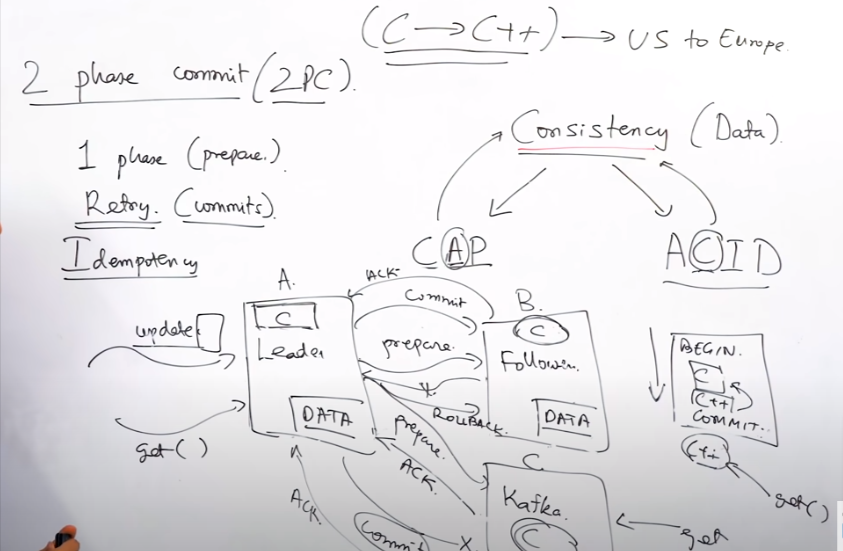 (C → C++) → US to Europe.
2 phase commit (2PC).
Consistency (Data).
1 phase (prepare.)
Retry. (commits).
Idempotency
CAP
ACID
A.
ACK
Commit
B.
update
C
Leader
prepare.
C
Follower.
X
ROLLBACK.
DATA
DATA
get()
prepare.
ACK.
BEGIN.
C
C++
COMMIT.
C++
get()
C.
Kafka.
C
get
ACK.
Commit
X